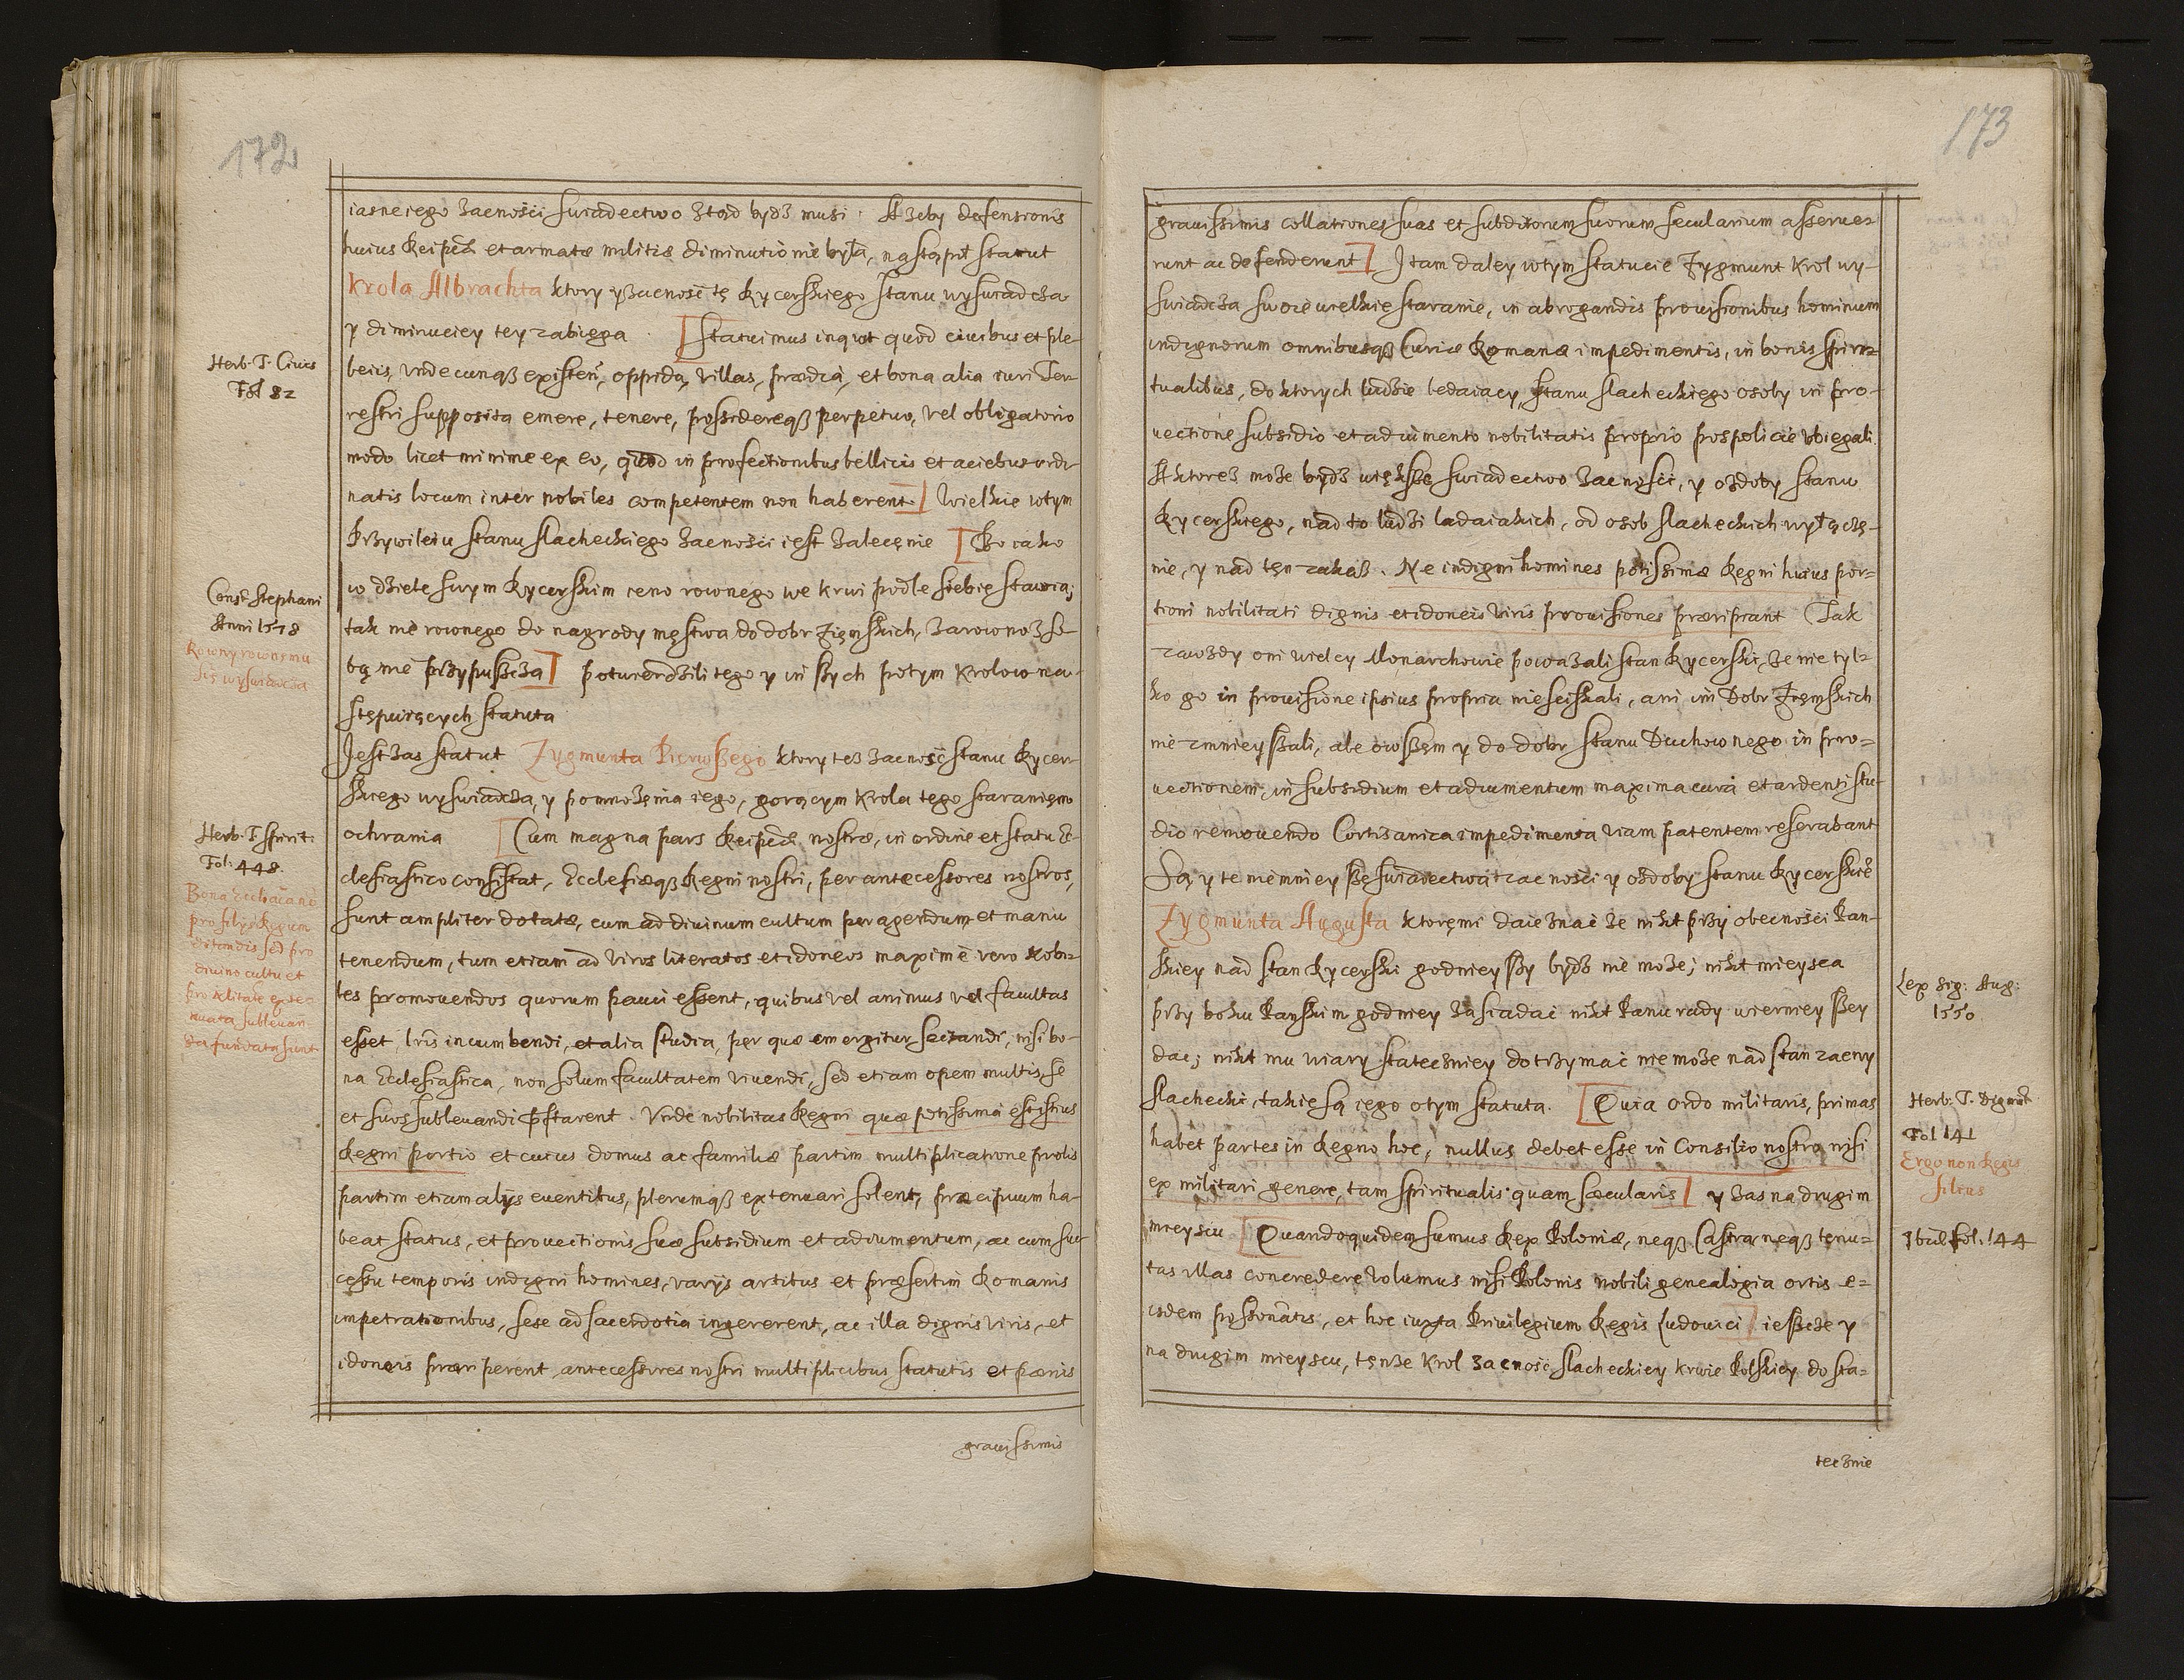 172
iasne iego zacności swiadectwo ztąd bydz musi. A zeby defensionis
huius Reipcæ et armatæ militiæ diminutio nie była, nastąpił statut
Krola Albrachta ktory y zacność tę Rycerskiego stanu wyswiadcza
y diminuciey tey zabiega. [Statuimus inquit quod ciuibus et ple-
Herb. T. Ciues
Fol 82
beiis, vndecunqz existen, oppida, villas, prædia, et bona alia iuri Ter-
restri supposita emere, tenere, possidereqz perpetuo, vel obligatorio
modo licet minime ex eo, quod in profectionibus bellicis et aciebus ordi-
natis locum inter nobiles competentem non haberent] Wielkie wtym
Przywileiu stanu slacheckiego zacności iest zalecęnie [Bo iako
Const Stephani
Anni 1578
Rowny rownęmu
się wyswiadcza
w dziele swym Rycerskim ceno rownego we krwi podle siebie stawia;
tak nie rownego do nagrody męstwa do dobr Zięmskich, zarowno z so-
bą nie przypuszcza] potwierdzili tego y inszych potym Krolow na-
stępuiących statuta
Jest zas statut Zygmunta Pierwszego ktory tez zacność stanu Rycer-
skiego wyswiadcza, y pomnozęnia iego, gorącym Krola tego staranięm
Herb. T. Spirit.
Fol: 448.
ochrania [Cum magna pars Reipcæ nostræ, in ordine et statu Ec-
clesiastico consistat, Ecclesiæqz Regni nostri, per antecessores nostros,
Bona Ecclãca nõ
pro filijs Regum
ditandis sed pro
diuino cultu et
pro nobilitate exte-
nuata subleuan
da fundata sunt
sunt ampliter dotatæ, cum ad diuinum cultum peragendum et manu
tenendum, tum etiam ad viros literatos et idoneos maxime vero nobi-
les promouendos quorum pauci essent, quibus vel animus vel facultas
esset, lris incumbendi, et alia studia, per quæ emergitur sectandi, nisi bo-
na Ecclesiastica, non solum facultatem viuendi, sed etiam opem multis, se
et suos subleuandi pstarent. Vnde nobilitas Regni quæ potissima est istius
Regni portio et cuius domus ac familiæ partim multiplicatione prolis
partim etiam alijs euentibus, plerumqz extenuari solent, præcipuum ha-
beat status, et prouectionis suæ subsidium et adiumentum, ac cum suc-
cessu temporis indigni homines, varijs artibus et præsertim Romanis
impetrationibus, sese ad sacerdotia ingererent, ac illa dignis viris, et
idoneis præriperent antecessores nostri multiplicibus statutis et pænis
grauissimis
173
grauissimis collationes suas et subditorum suorum secularium asserue-
runt ac defenderunt] Itam daley wtym statucie Zygmunt Krol wy-
swiadcza swoie wielkie staranie, in abrogandis prouisionibus hominum
indignorum omnibusqz Curiæ Romanæ impedimentis, in bonis spiri-
tualibus, do ktorych ludzie ledaiacy, stanu slacheckiego osoby in pro-
uectione subsidio et adiumento nobilitatis proprio pospolicie vbiegali.
A ktorez moze bydz większe swiadectwo zacnosci, y ozdoby stanu
Rycerskiego, nad to ludzi ladaiakich, od osob slacheckich wyłączę-
nie, y nad tęn zakaz. Ne indigni homines potissimæ Regni huius por-
tioni nobilitati dignis et idoneis viris prouisiones præripiant Tak
zawzdy oni wielcy Monarchowie powazali stan Rycerski, ze nie tyl-
ko go in prouisione ipsius propria niesciskali, ani im Dobr Zięmskich
nie zmnieyszali, ale owszęm y do dobr stanu Duchownego in pro-
uectionem, in subsidium et adiumentum maxima cura et ardenti stu-
dio remouendo Cortizanica impedimenta viam patentem reserabant
Są y te niemniey sze swiadectwa zacności y ozdoby stanu Rycerskie
Zygmunta Augusta ktoręmi daie znać ze nikt przy obecności Pan-
skiey nad stan Rycerski godnieyszy bydz nie moze; nikt mieysca
Lex Sig: Aug:
1550
przy boku Panskim godniey zasiadać nikt Panu rady wiernieyszey
dać; nikt mu wiary statecżniey dotrzymać nie moze nad stan zacny
slachecki, takie są iego otym statuta. [Quia ordo militaris, primas
Herb. T. Dignit
Fol 141
Ergo non Regis
filius
habet partes in Regno hoc, nullus debet esse in Consilio nostro nisi
ex militari genere, tam spiritualis quam sæcularis] y zas na drugim
mieyscu [Quandoquidem sumus Rex Poloniæ, neqz Castra neqz tęnu-
Ibid Fol: 144
tas illas concredere volumus nisi Polonis nobili genealogia ortis e-
isdem possonatis, et hoc iuxta Priuilegium Regis Ludouici] ieszcze y
na drugim mieyscu, tęnze Krol zacność slacheckiey krwie Polskiey dosta-
tecznie